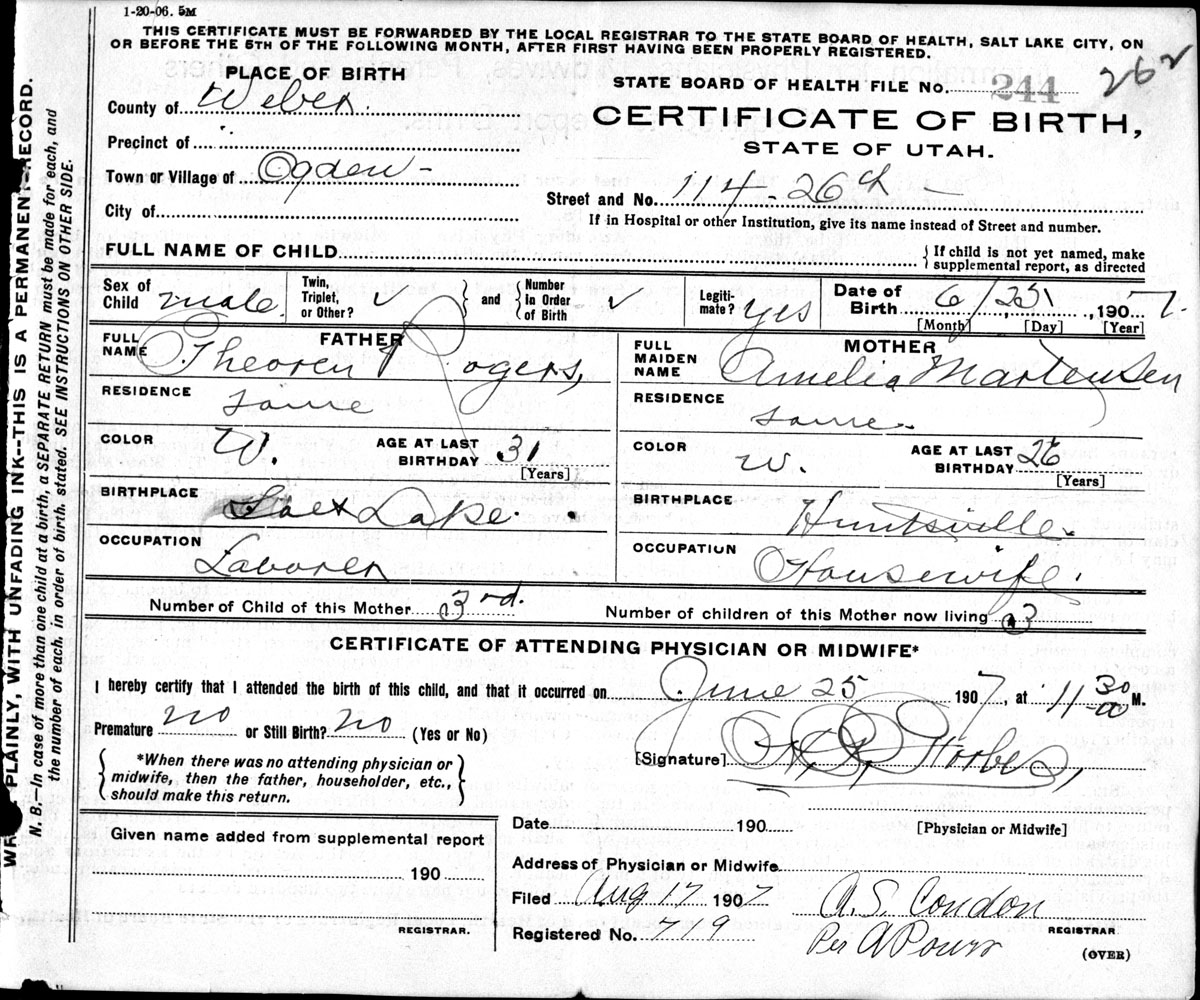 1-20-06. 5M
THIS CERTIFICATE MUST BE FORWARDED BY THE LOCAL REGISTRAR TO THE STATE BOARD OF HEALTH, SALT LAKE CITY, ON
OR BEFORE THE 5TH OF THE FOLLOWING MONTH, AFTER FIRST HAVING BEEN PROPERLY REGISTERED.
PLACE OF BIRTH
County of Weber.
Precinct of
Town or Village of Ogden -
City of
STATE BOARD OF HEALTH FILE No. 244 262
CERTIFICATE OF BIRTH,
STATE OF UTAH.
Street and No. 114 - 26th -
If in Hospital or other Institution, give its name instead of Street and number.
FULL NAME OF CHILD
{ If child is not yet named, make
supplemental report, as directed
Sex of Child male. Twin, Triplet, or Other? ✓ and { Number in Order of Birth ✓ Legiti-mate? yes Date of Birth 6 / 25 , 1907.
[Month] [Day] [Year]
FATHER
FULL NAME Theoren Rogers,
RESIDENCE same
COLOR W. AGE AT LAST BIRTHDAY 31
[Years]
BIRTHPLACE Salt Lake.
OCCUPATION Laborer
MOTHER
FULL MAIDEN NAME Amelia Martensen
RESIDENCE same.
COLOR W. AGE AT LAST BIRTHDAY 26
[Years]
BIRTHPLACE Huntsville.
OCCUPATION Housewife.
Number of Child of this Mother 3rd. Number of children of this Mother now living 3
CERTIFICATE OF ATTENDING PHYSICIAN OR MIDWIFE*
I hereby certify that I attended the birth of this child, and that it occurred on June 25 1907, at 11 30 a M.
Premature no or Still Birth? no (Yes or No)
{ *When there was no attending physician or
midwife, then the father, householder, etc.,
should make this return. }
[Signature]
[Physician or Midwife]
Given name added from supplemental report
190
REGISTRAR.
Date 190
Address of Physician or Midwife
Filed Aug 17 1907 A.S. Condon
REGISTRAR
Registered No. 719 Per
(OVER)
PLAINLY, WITH UNFADING INK--THIS IS A PERMANENT RECORD.
N. B.—In case of more than one child at a birth, a SEPARATE RETURN must be made for each, and
the number of each, in order of birth, stated. SEE INSTRUCTIONS ON OTHER SIDE.